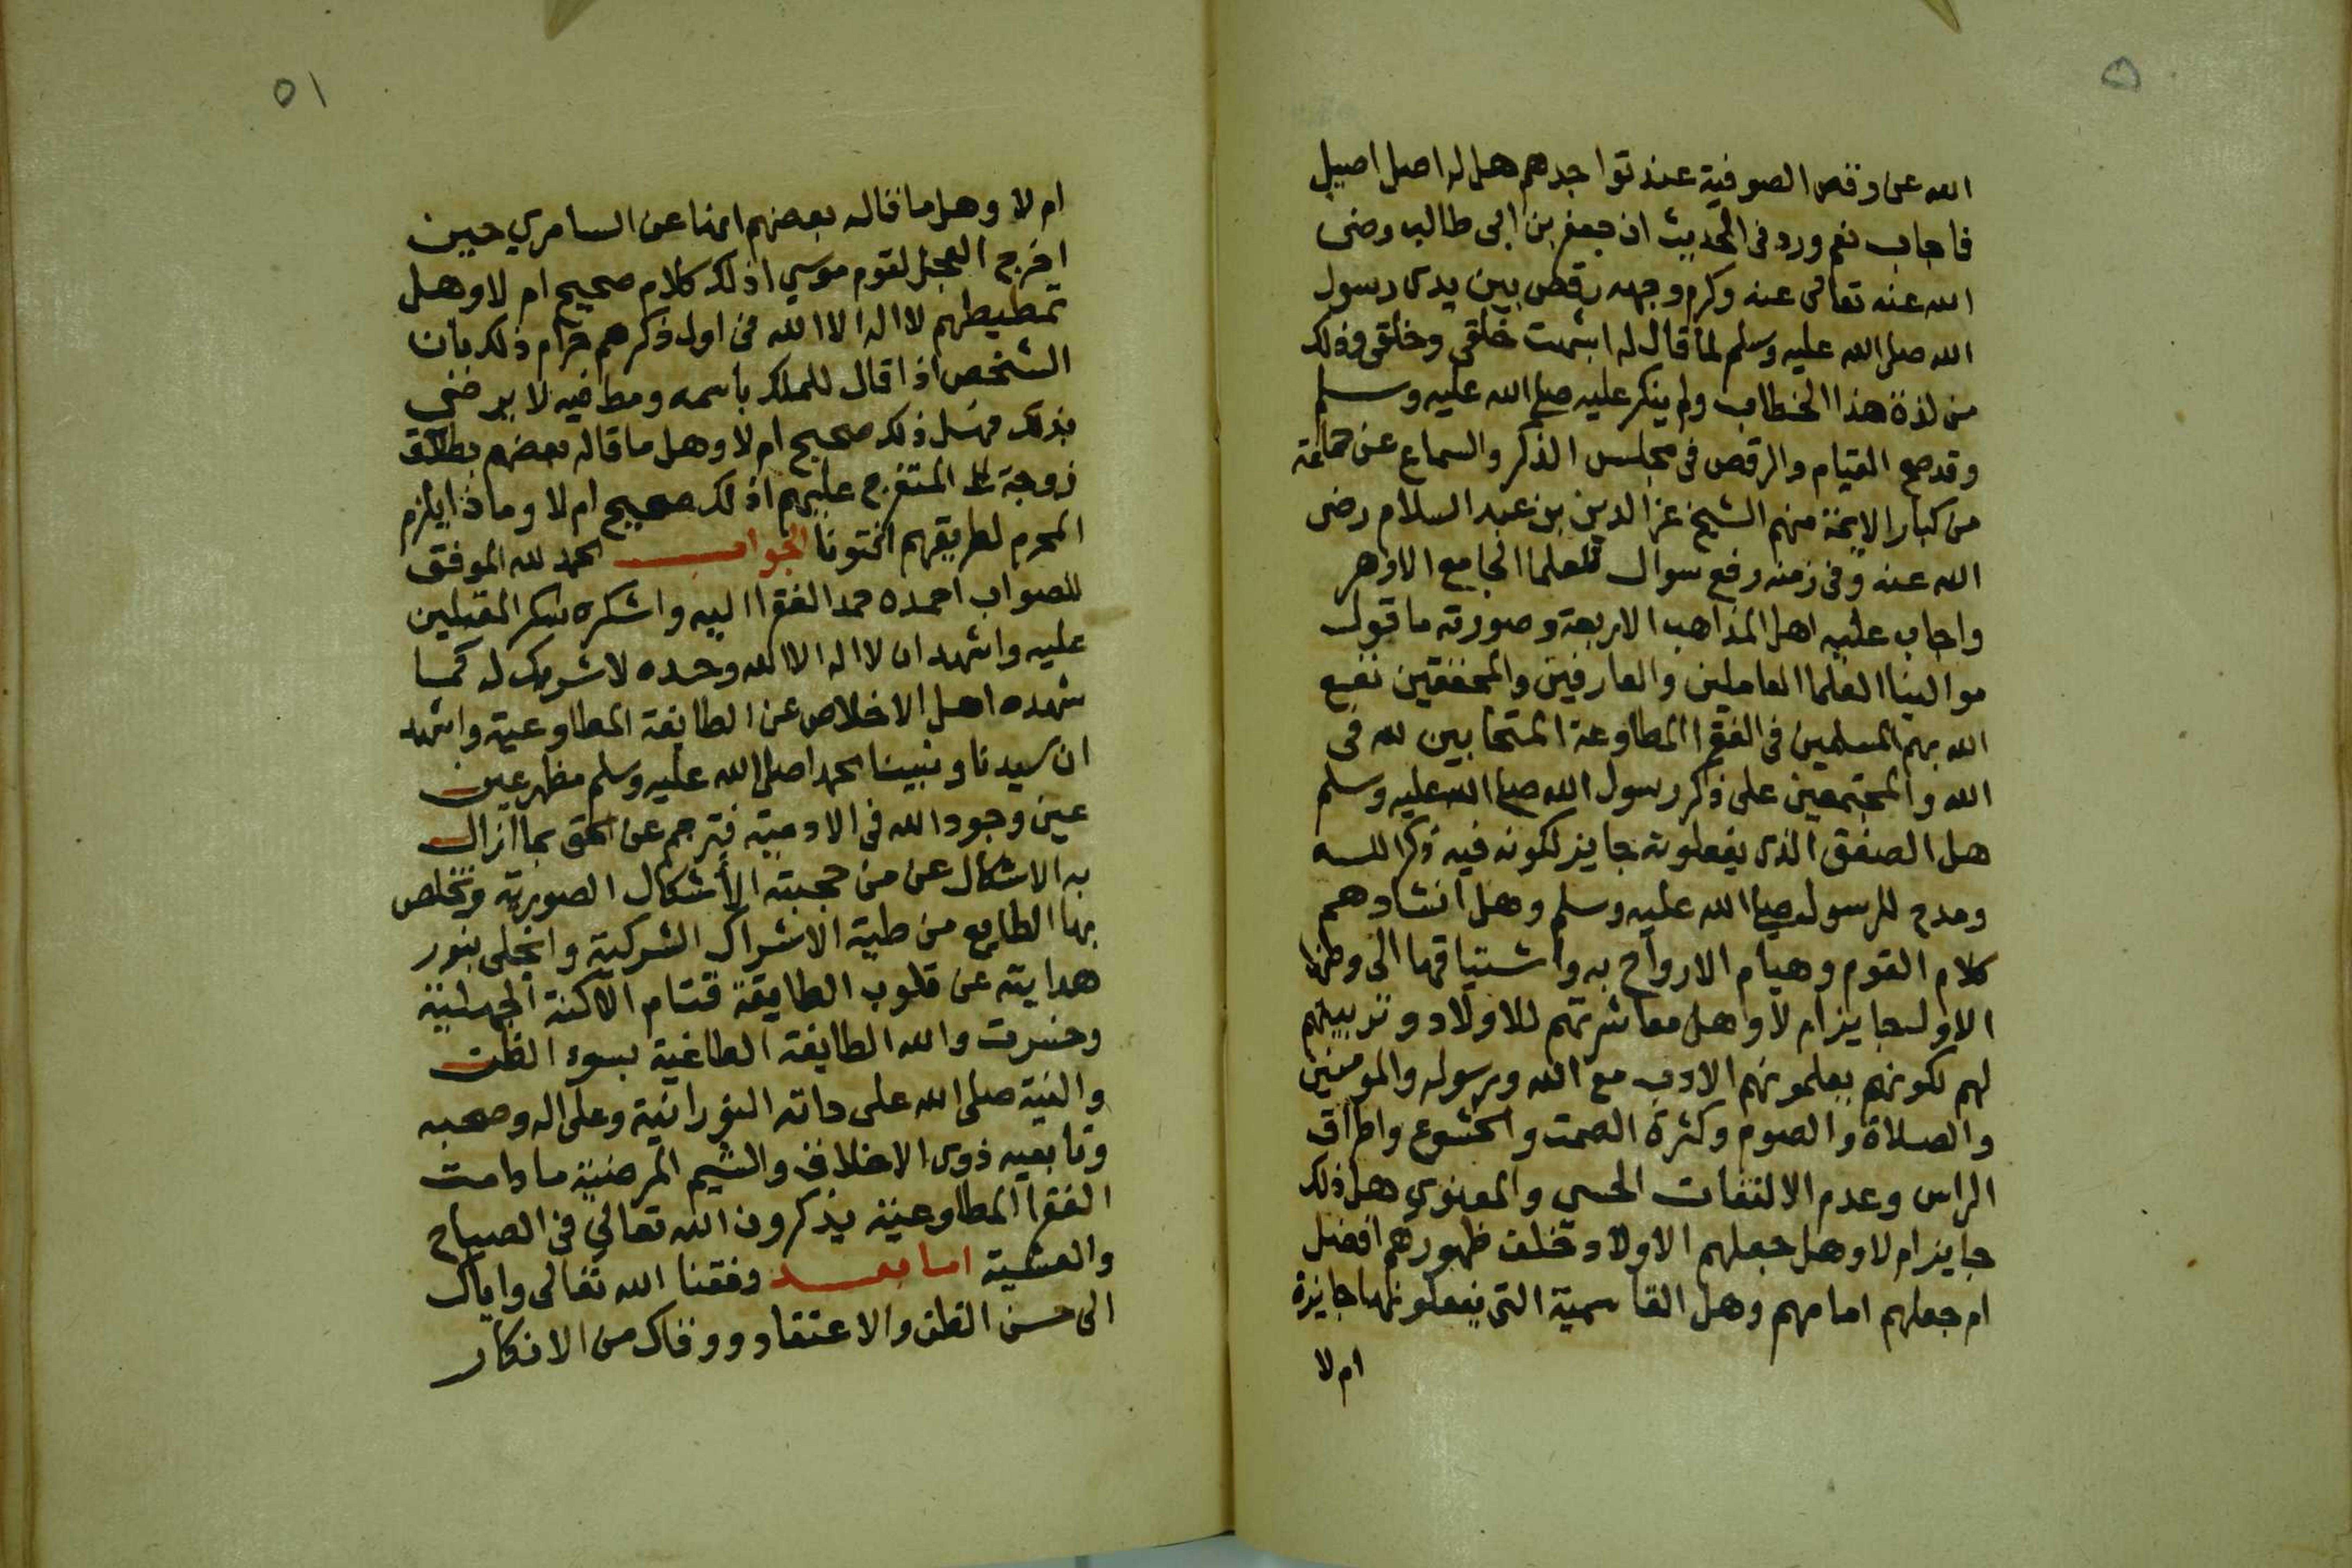 الله عن رقص الصوفية عند تواجدهم هل له اصل اصيل
فاجاب نعم ورد في الحديث ان جعفر بن ابى طالب رضى
الله عنه تعالى عنه وكرم وجهه رقص بين يدى رسول
الله صلى الله عليه وسلم لما قال له اشبهت خلقى وخلقى وذلك
من لذة هذا الخطاب ولم ينكر عليه صلى الله عليه وسلم
وقد صح القيام والرقص في مجلس الذكر والسماع عن جماعة
من كبار الايمة منهم الشيخ عز الدين بن عبد السلام رضى
الله عنه وفى زمنه رفع سوال لعلما الجامع الازهر
واجاب عليه اهل المذاهب الاربعة وصورته ما قول
موالينا العلما العاملين والعارفين والمحققين نفع
الله بهم المسلمين فى الفقرا المطاوعة المتحابين لله فى
الله والمجتمعين على ذكر رسول الله صلى الله عليه وسلم
هل الصفق الذى يفعلونه جايز لكونه فيه ذكر الله
ومدح للرسول صلى الله عليه وسلم وهل انشادهم
كلام القوم وهيام الارواح به واشتياقها الى وطنها
الاول جايز ام لا وهل معاشرتهم للاولاد وتربيتهم
لهم لكونهم يعلمونهم الادب مع الله ورسوله والمومنين
والصلاة والصوم وكثرة الصمت والخشوع واطراق
الراس وعدم الالتفات الحسى والمعنوي هل ذلك
جايز ام لا وهل جعلهم الاولاد خلف ظهورهم افضل
ام جعلهم امامهم وهل القاسمية التى يفعلونها جايزة
ام لا
٥١
ام لا وهل ما قاله بعضهم انها عن السامري حين
اخرج العجل لقوم موسي اذلك كلام صحيح ام لا وهل
تمطيطهم لا اله الا الله فى اول ذكرهم حرام ذلك بان
الشخص اذا قال للملك باسمه ومط فيه لا يرضي
بذلك فهل ذلك صحيح ام لا وهل ما قاله بعضهم بطلاق
زوجة المتفرج عليهم اذلك صحيح ام لا وماذا يلزم
المحرم لطريقهم افتونا الجواب الحمد لله الموفق
للصواب احمده حمد الفقرا اليه واشكره شكر المقبلين
عليه واشهد ان لا اله الا الله وحده لا شريك له كما
شهده اهل الاخلاص عن الطايفة المطاوعية واشهد
ان سيدنا ونبينا محمدا صلى الله عليه وسلم مظهر عين
عين وجود الله فى الادمية فترجم عن الحق بما ازال
به الاشكال عن من حجبته الأشكال الصورية وتخلص
بها الطايع من طية الاشراك الشركية وانجلى بنور
هدايته عن قلوب الطايفة قتام الاكنة الجهلية
وخسرت والله الطايفة الطاغية بسوء الظن
والنية صلى الله على ذاته النورانية وعلى اله وصحبه
وتابعيه ذوى الاخلاق والشيم المرضية ما دامت
الفقرا المطاوعية يذكرون الله تعالي فى الصباح
والعشية اما بعد وفقنا الله تعالى واياك
الى حسن الظن والاعتقاد ووقاك من الانكار